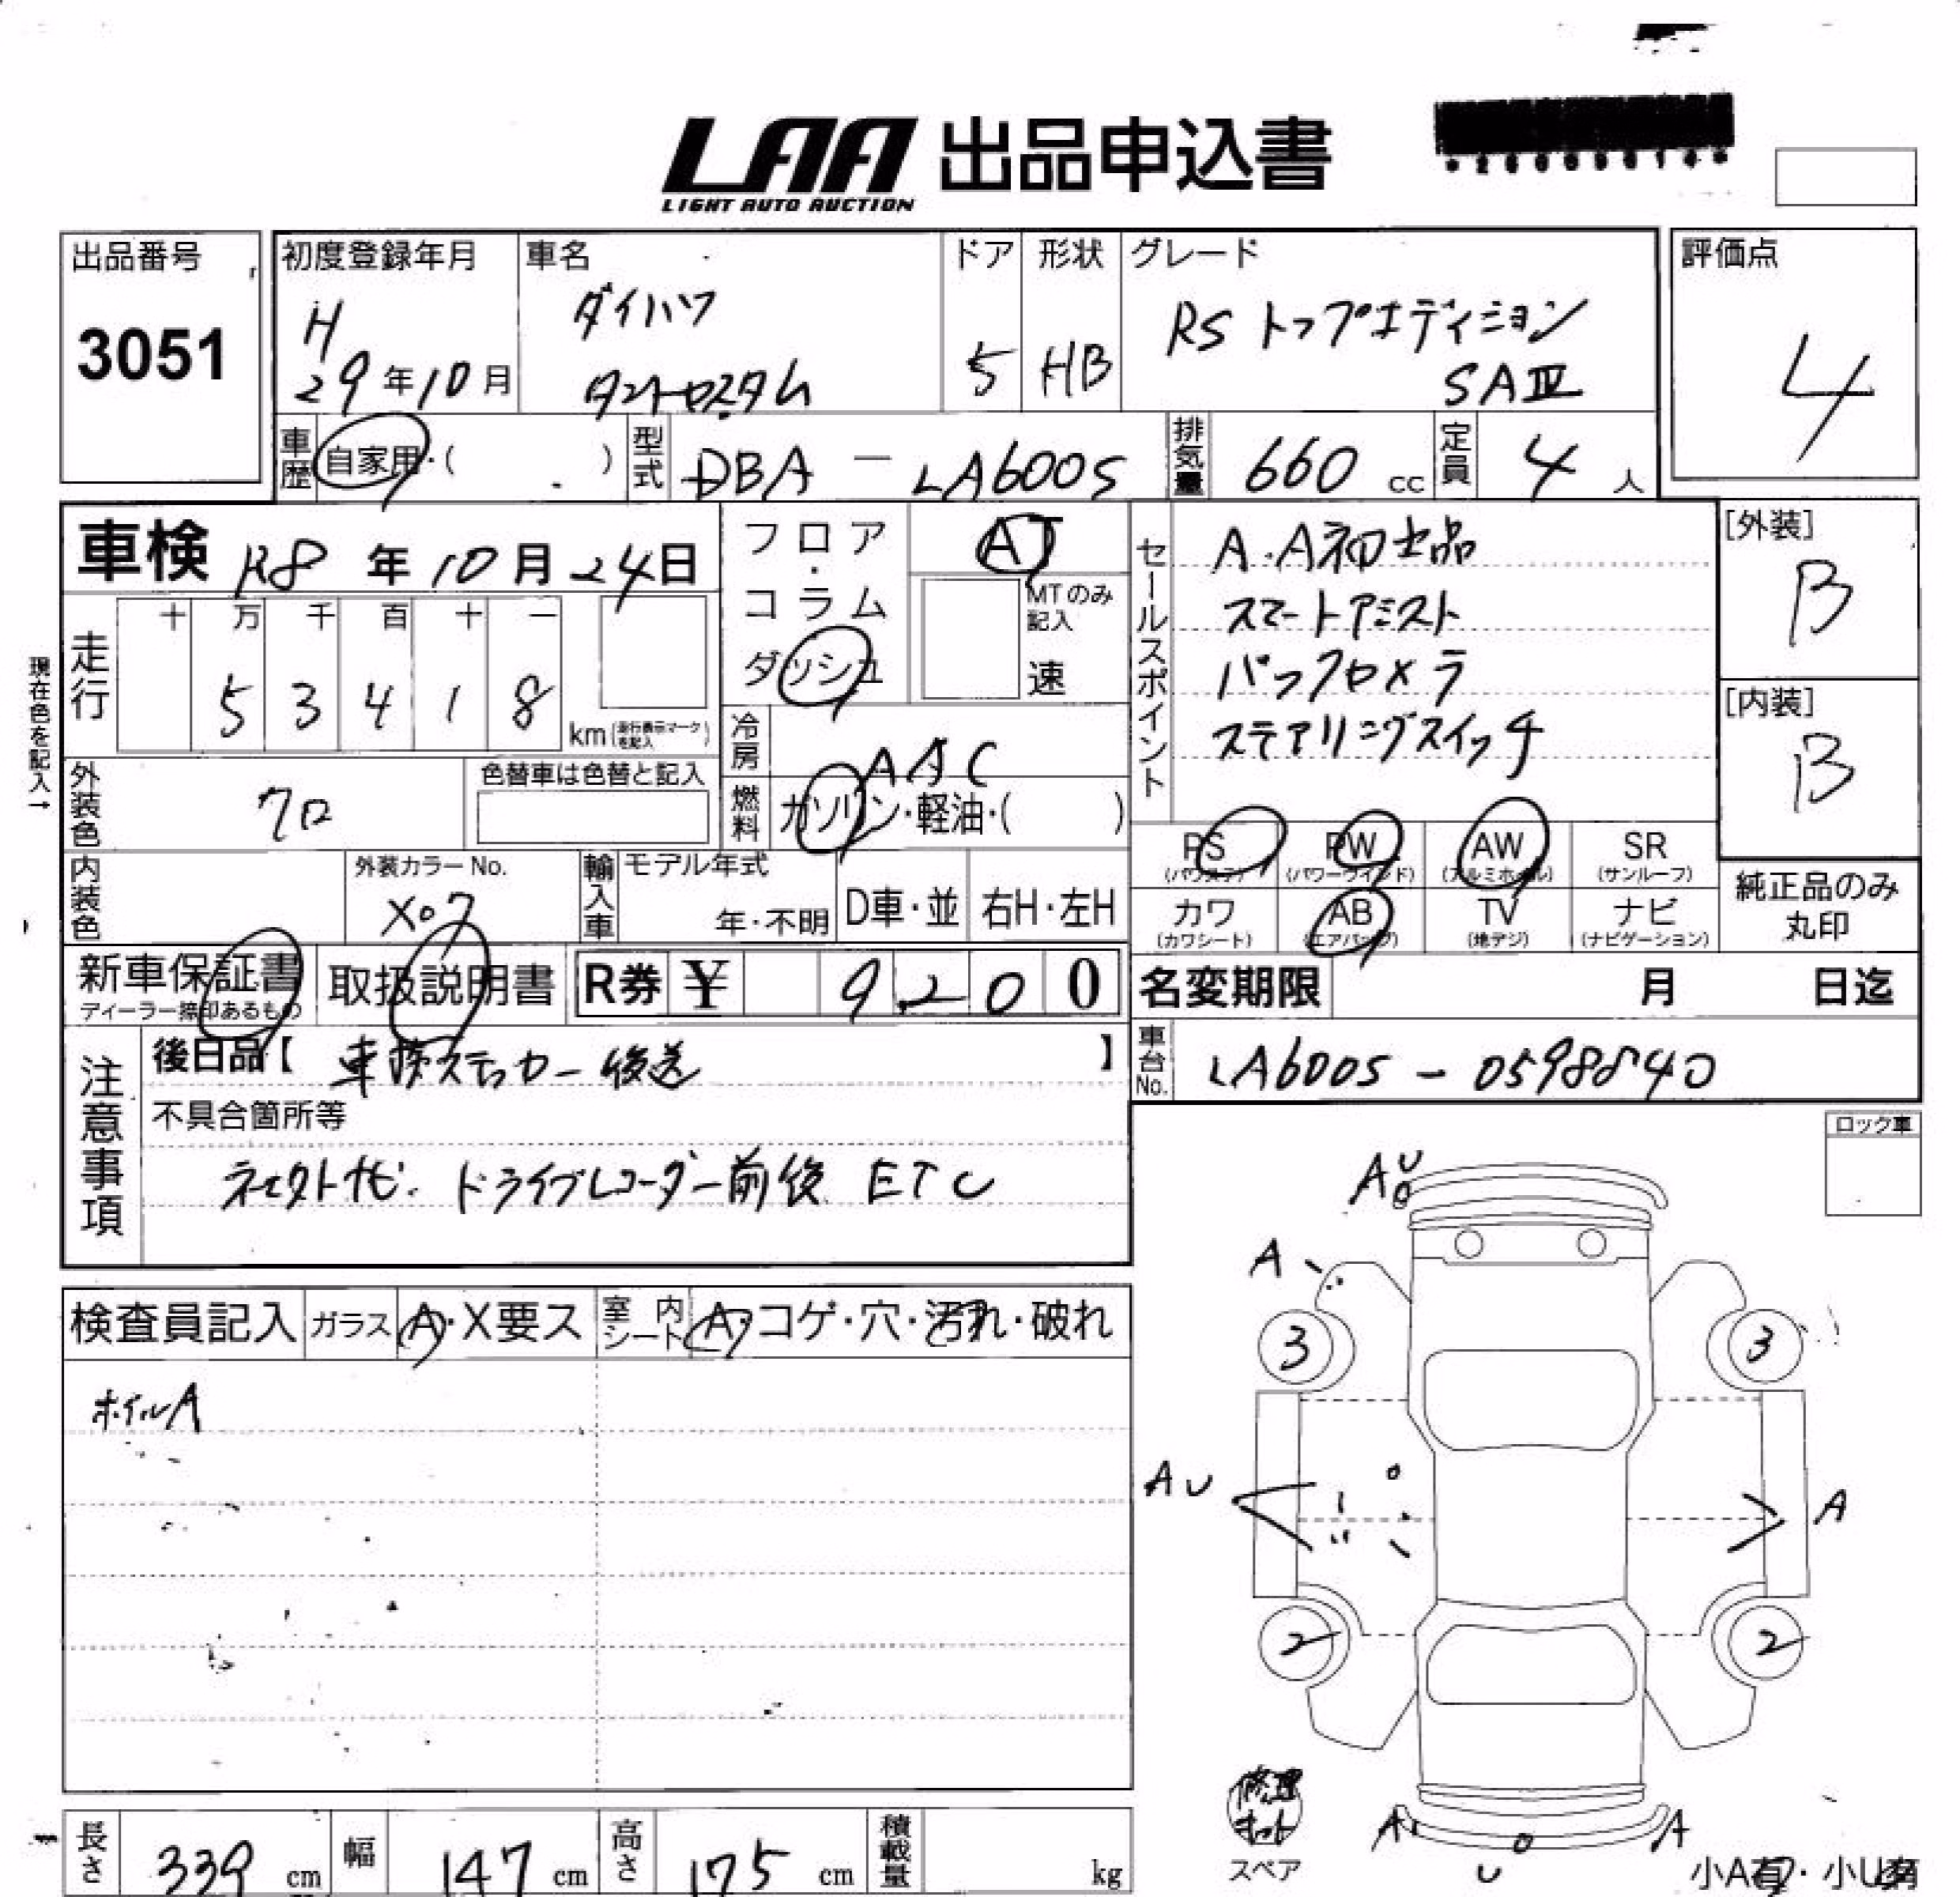 LAA 出品申込書
LIGHT AUTO AUCTION
出品番号
3051
初度登録年月
H
29年10月
車名
ダイハツ
タントカスタム
ドア
5
形状
HB
グレード
RS トップエディション
SAⅢ
評価点
4
車歴
自家用・( )
型式
DBA - LA600S
排気量
660 cc
定員
4 人
車検 R8年10月24日
フロア・コラム
ダッシュ
AT
MTのみ
記入
速
セールスポイント
A.A初出品
スマートアシスト
バックカメラ
ステアリングスイッチ
[外装]
B
[内装]
B
現在色を記入→
走行
十 万 千 百 十 一
5 3 4 1 8
km(走行表示マークを記入)
冷房
AAC
外装色
クロ
色替車は色替と記入
燃料
ガソリン・軽油・( )
PS
(パワステ)
PW
(パワーウインド)
AW
(アルミホイル)
SR
(サンルーフ)
カワ
(カワシート)
AB
(エアバッグ)
TV
(地デジ)
ナビ
(ナビゲーション)
純正品のみ
丸印
内装色
外装カラーNo.
X07
輸入車
モデル年式
年・不明
D車・並
右H・左H
新車保証書
ディーラー捺印あるもの
取扱説明書
R券 ¥ 9200
名変期限 月 日迄
注意事項
後日品【 車検ステッカー後送 】
車台No.
LA600S - 0598840
不具合箇所等
ネクストナビ. ドライブレコーダー前後 ETC
ロック車
検査員記入
ガラス
A・X要ス
室内シート
A・コゲ・穴・汚れ・破れ
ホイルA
A U
A
3
3
A U
A
2
2
修理キット
スペア
A
A
U
小A有・小U有
長さ
339 cm
幅
147 cm
高さ
175 cm
積載量
kg